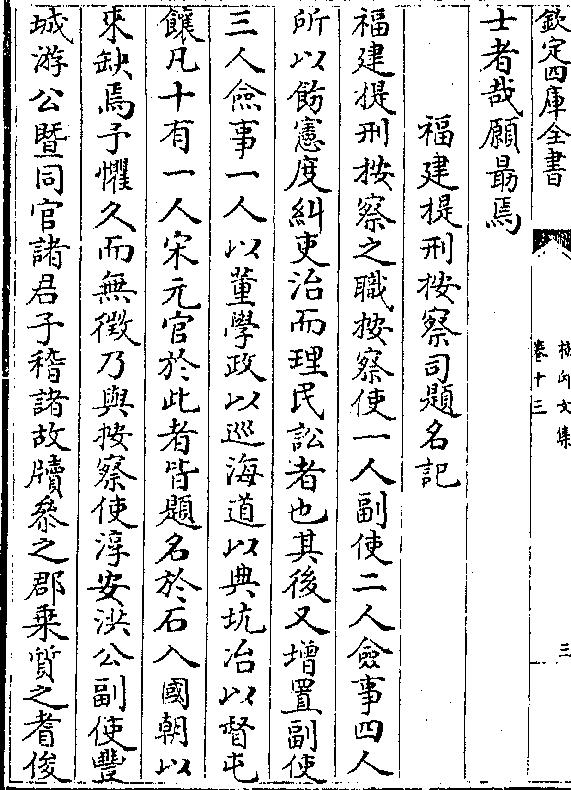 欽定四庫全書
卷十三
三
士者哉願最焉
福建提刑按察司題名記
福建提刑按察之職按察使一人副使二人僉事四人
所以飭憲度糾吏治而理民訟者也其後又增置副使
三人僉事一人以董學政以巡海道以典坑冶以督屯
饟凡十有一人宋元官於此者皆題名於石入國朝以
來缺焉予懼久而無徵乃與按察使淳安洪公副使豐
城游公暨同官諸君子稽諸故牘叅之郡乗質之耆俊